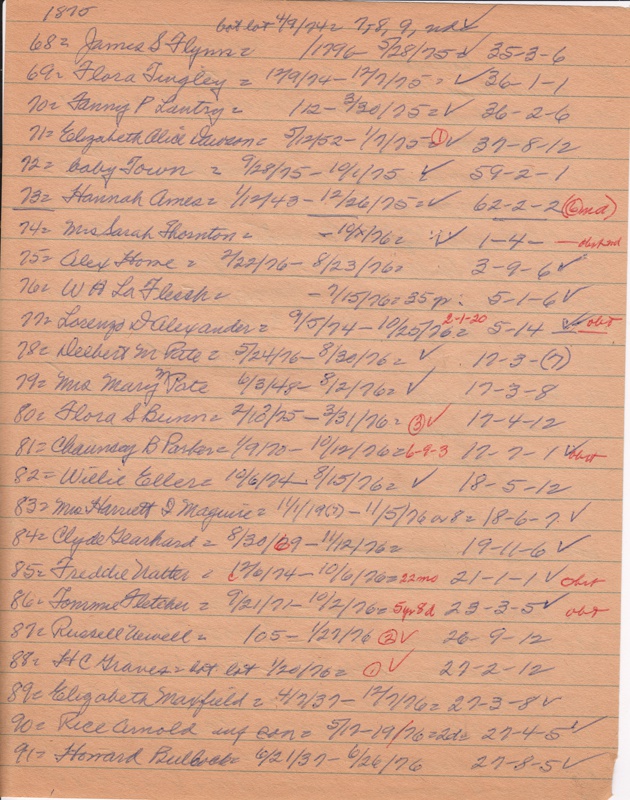 1875
bot lot 4/9/74= 7,8, 9, nd ✓
68= James S Flynn= /1796- 5/28/75= ✓ 35-3-6
69= Flora Tingley= 12/9/74- 12/7/75= ✓ 36-1-1
70= Fanny P Lantry= 1/12- 3/30/75= ✓ 36-2-6
71= Elizabeth Alice Dawson= 5/12/52- 1/7/75= ① ✓ 37-8-12
72= baby Town = 9/28/75- 10/1/75 ✓ 59-2-1
73= Hannah Ames= 1/12/43- 12/26/75= ✓ 62-2-2 (6md)
74= Mrs Sarah Thornton= - /76= ✓ 1-4-
75= Alex Home= 2/22/76- 8/23/76= 3-9-6 ✓
76= W A La Flesch= -7/15/76=35 yr: 5-1-6 ✓
77= Lorenzo D Alexander= 9/5/74- 10/25/76= 2-1-20 5-14 ✓ obt
78= Delbert M Pate= 5/24/76- 8/30/76= ✓ 17-3-(7)
79= Mrs Mary M Pate 6/3/48- 8/2/76= ✓ 17-3-8
80= Flora S Bunn= 2/18/25- 3/31/76= ③ ✓ 17-4-12
81= Chauncey B Parker= 1/9/70- 10/12/76= 6-9-3 17-7-1 ✓ obit
82= Willie Eller= 10/6/74- 8/15/76= ✓ 18-5-12
83= Mrs Harriett I Maguire= 11/1/19(?)- 11/5/76 or 8= 18-6-7 ✓
84= Clyde Gearhard= 8/30/69- 11/12/76= 19-11-6 ✓
85= Freddie Natter= 12/6/74- 10/6/76= 22mo 21-1-1 ✓ obit
86= Tommie Fletcher= 9/21/71- 10/2/76= 5yr8d 23-3-5 ✓ obt
87= Russell Newell= 105- 1/27/76 ② ✓ 26-9-12
88= H C Graves= bot lot 1/20/76= ① ✓ 27-2-12
89= Elizabeth Maxfield= 4/7/37- 12/7/76= 27-3-8 ✓
90= Rice Arnold inf son= 5/17-19/76=2d= 27-4-5 ✓
91= Howard Bullock= 6/21/37- 6/26/76 27-8-5 ✓